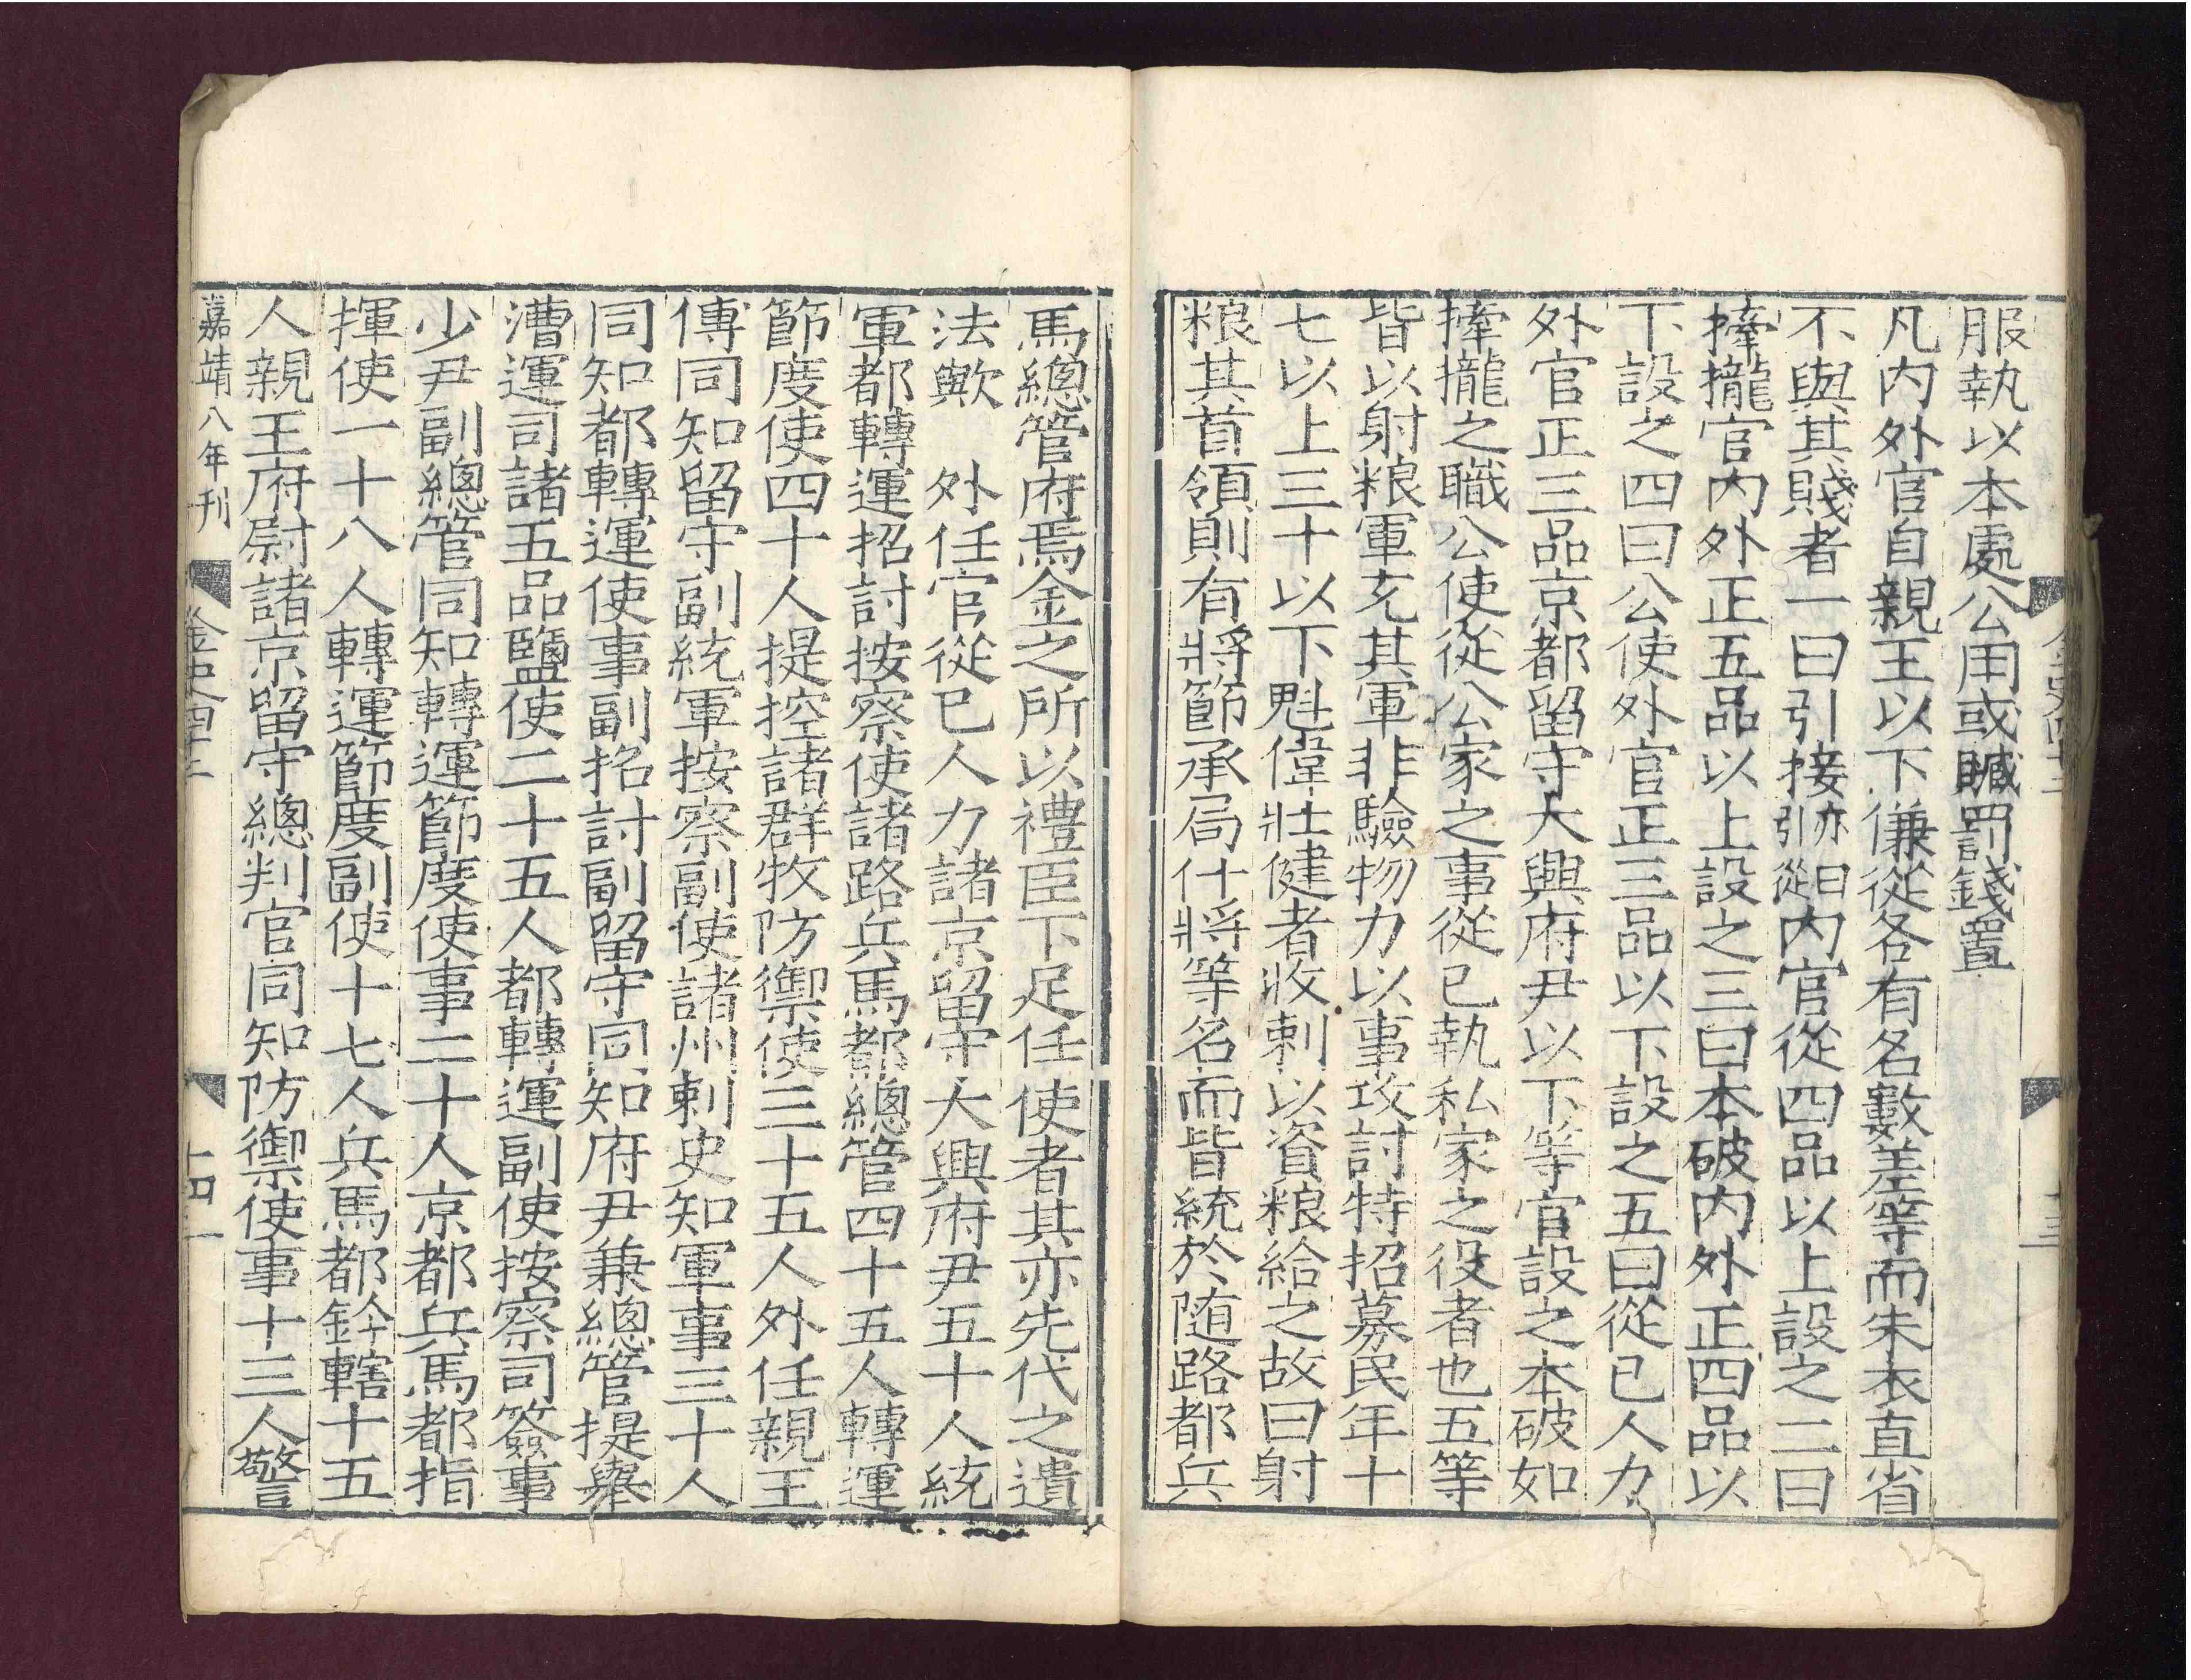 服執以本處公用或贓罰錢置
凡內外官自親王以下傔從各有名數差等而朱衣直省
不與其賤者一曰引接亦曰引從內官從四品以上設之二曰
捧攏官內外正五品以上設之三曰本破內外正四品以
下設之四曰公使外官正三品以下設之五曰從已人力
外官正三品京都留守大興府尹以下等官設之本破如
捧攏之職公使從公家之事從已執私家之役者也五等
皆以射粮軍充其軍非驗物力以事攻討特招募民年十
七以上三十以下魁偉壯健者收刺以資粮給之故曰射
粮其首領則有將節承局什將等名而皆統於随路都兵
馬總管府焉金之所以禮臣下足任使者其亦先代之遺
法歟　外任官從已人力諸京留守大興府尹五十人統
軍都轉運招討按察使諸路兵馬都總管四十五人轉運
節度使四十人提控諸群牧防禦使三十五人外任親王
傅同知留守副統軍按察副使諸州刺史知軍事三十人
同知都轉運使事副招討副留守同知府尹兼總管提舉
漕運司諸五品鹽使二十五人都轉運副使按察司簽事
少尹副總管同知轉運節度使事二十人京都兵馬都指
揮使一十八人轉運節度副使十七人兵馬都鈐轄十五
人親王府尉諸京留守總判官同知防禦使事十三人警
嘉靖八年刊
金史四十二
十四